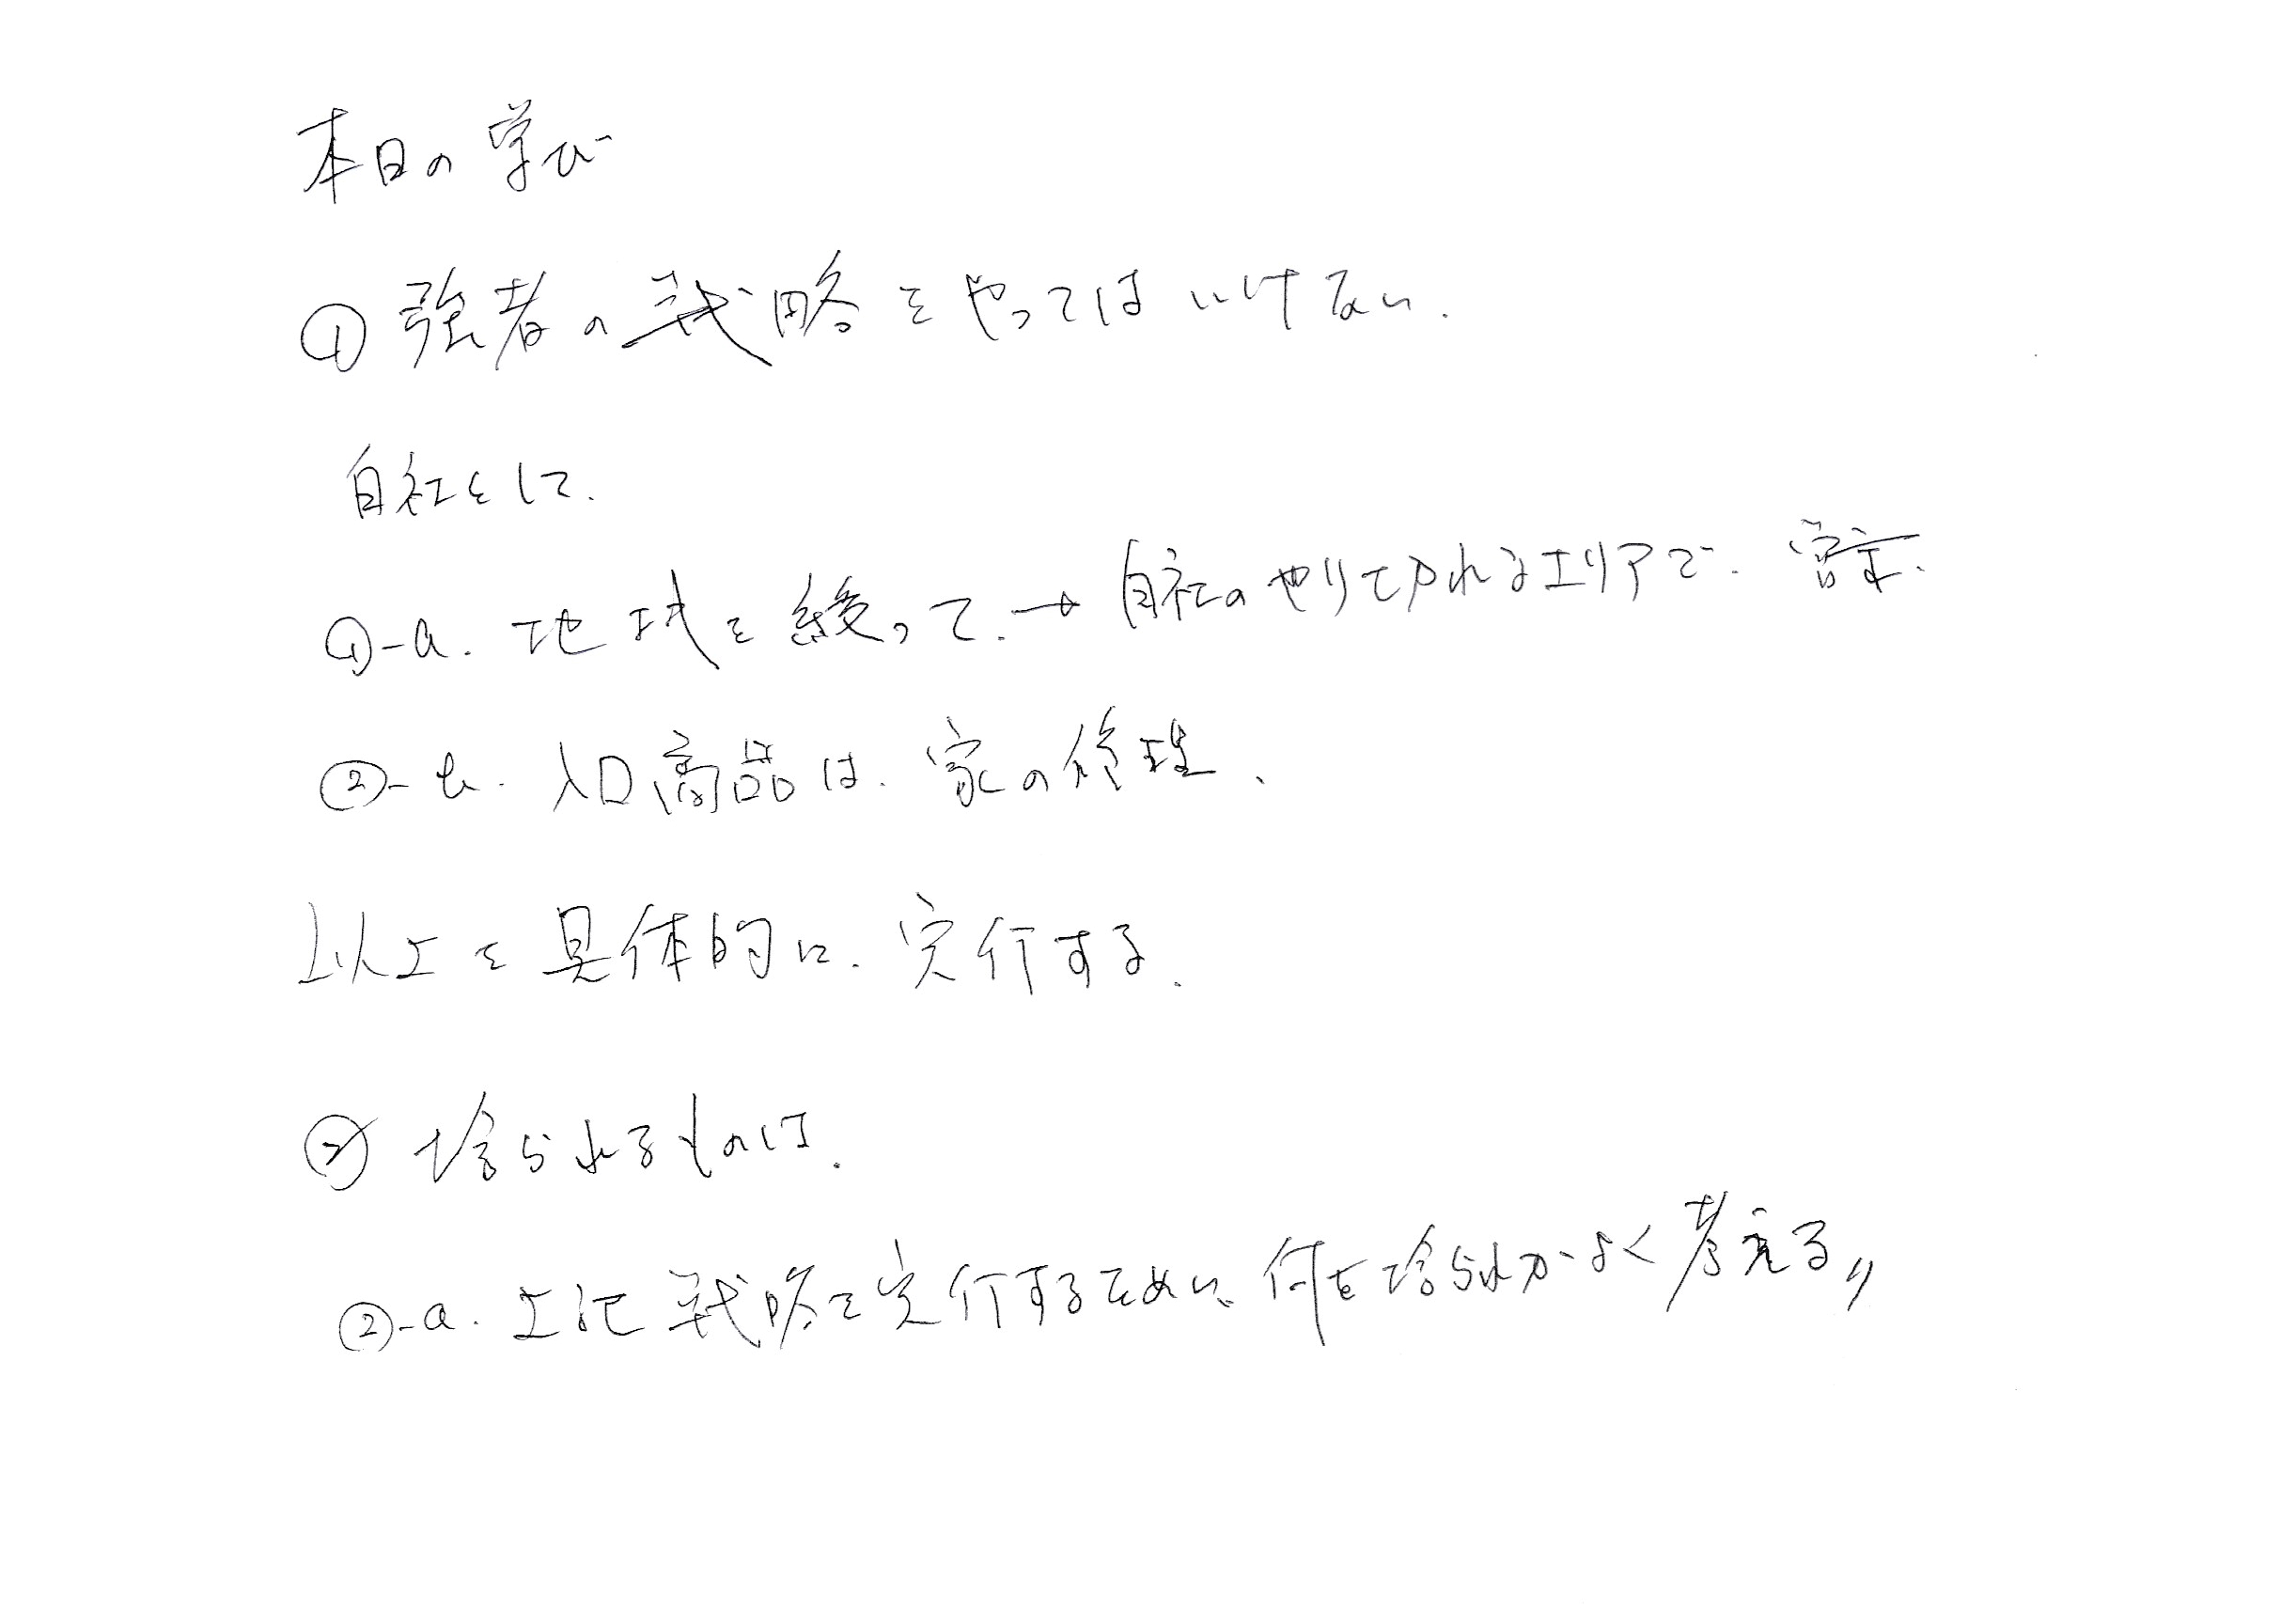 本日の学び
① 強者の戦略をやってはいけない.
自社として.
①-a. 地域を絞って. → 自社のやりてやれるエリアで.
②-b. 入口商品は. 家の修理、
以上を具体的に. 実行する.
② 捨られるものは.
②-a. 上記戦略を実行するために、何を捨られかよく考える〃